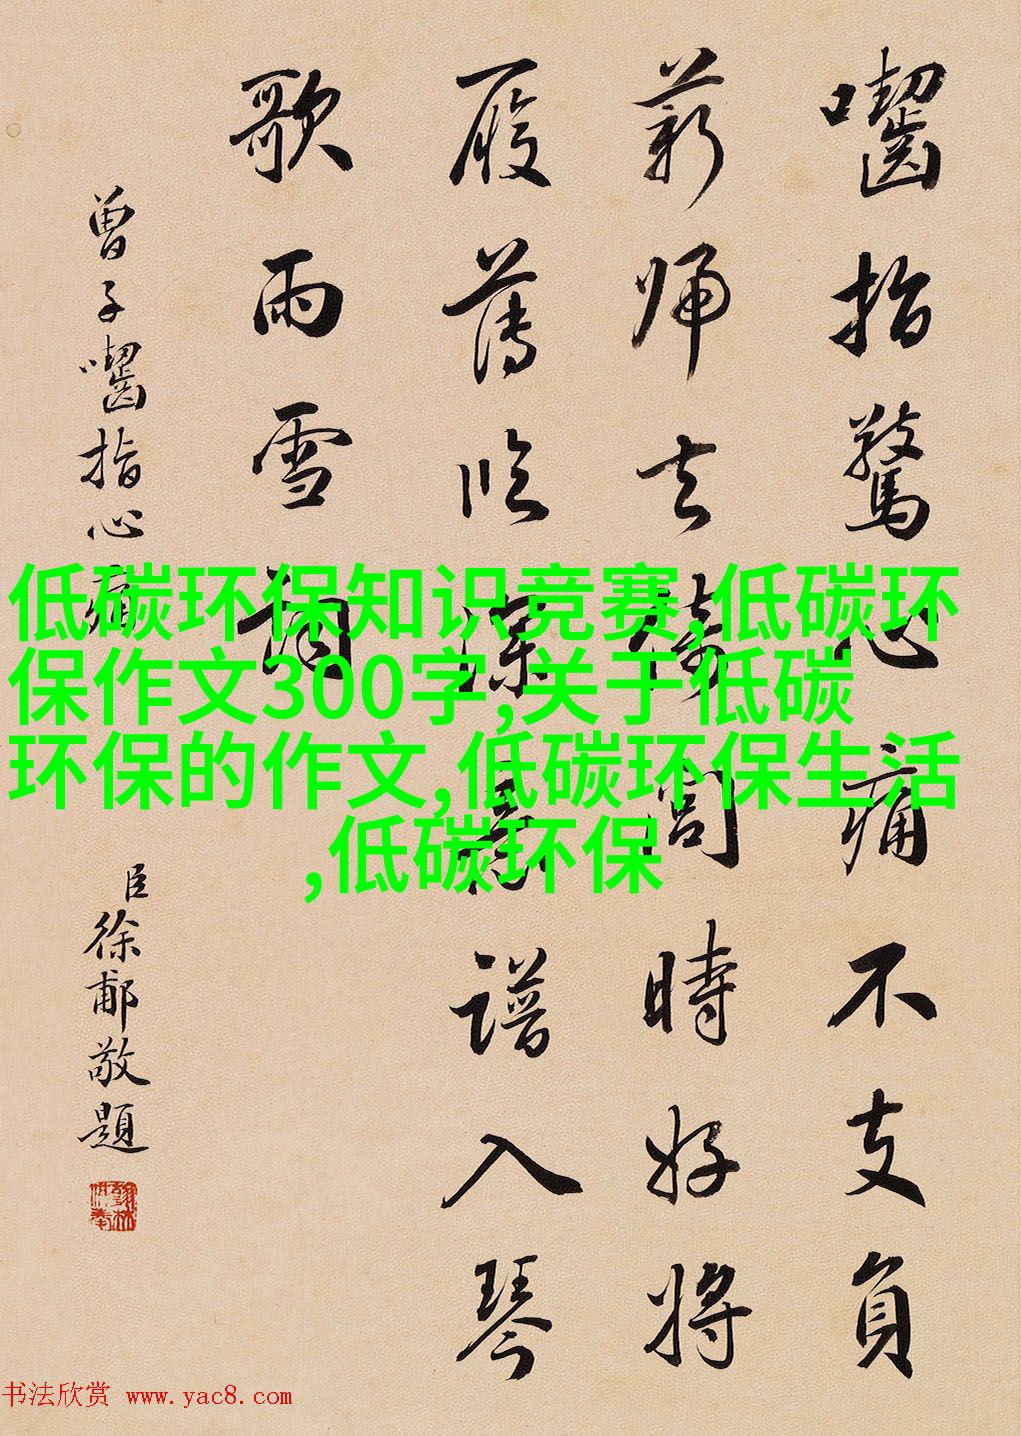 囓指驚心痛不支負
薪歸去倚閭時好將
履薄臨深意譜入琴
歌雨雪詞
曾子囓指心痛
臣徐郙敬題
低碳环保知识竞赛,低碳环
保作文300字,关于低碳
环保的作文,低碳环保生活
,低碳环保
书法欣赏 www.yac8.com